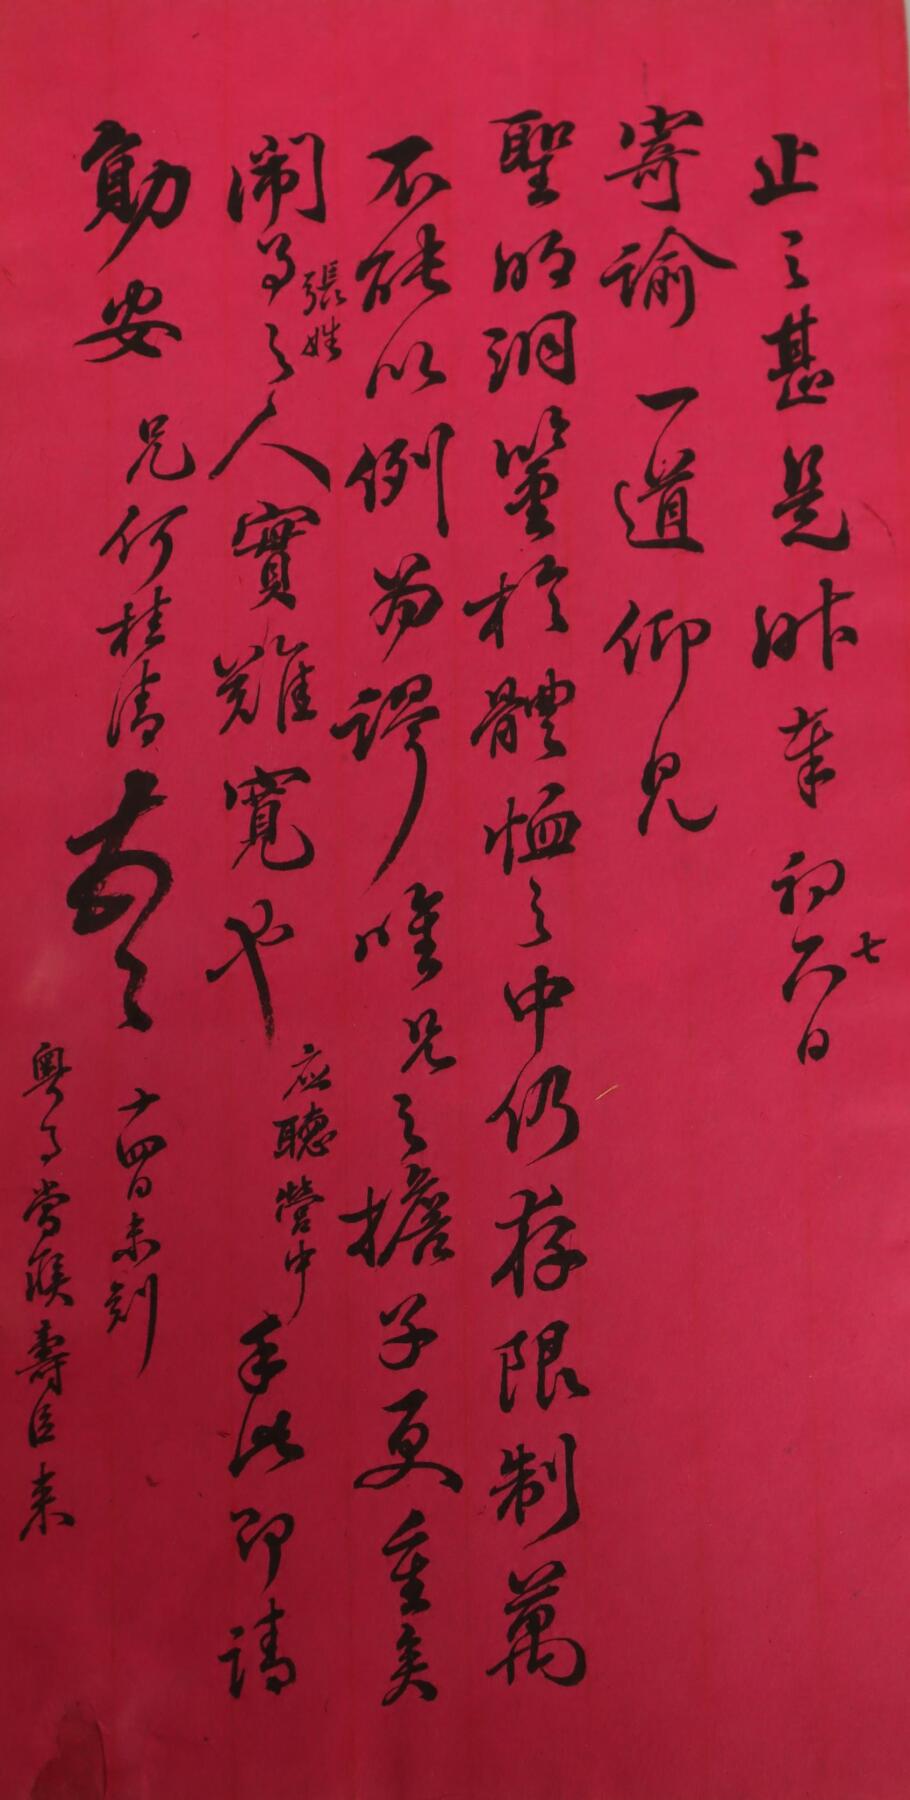 止之甚是昨奉初六七日
寄諭一道仰見
聖明洞鑒於體恤之中仍存限制萬
不能以例為謬唯兄之擔子更重矣
鬧事之人張姓實難寬也應聽營中手此即請
勛安 兄何桂清頓首 十四日未刻
粵事當候壽臣來